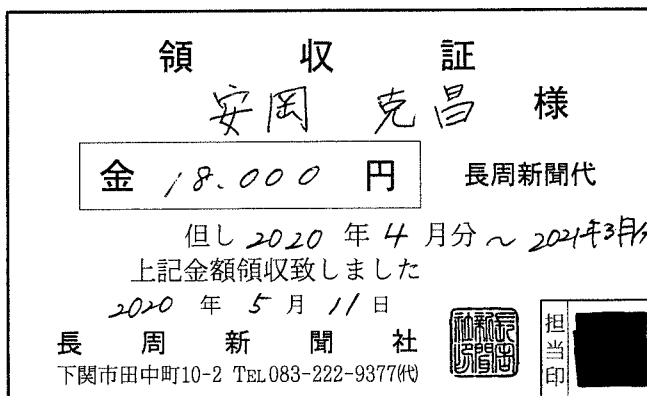 領収証
安岡 克昌 様
金 18.000 円 長周新聞代
但し 2020 年 4 月分 ~ 2021年3月分
上記金額領収致しました
2020 年 5 月 11 日
長周新聞社
長周新聞社印
担当印
下関市田中町10-2 TEL083-222-9377㈹